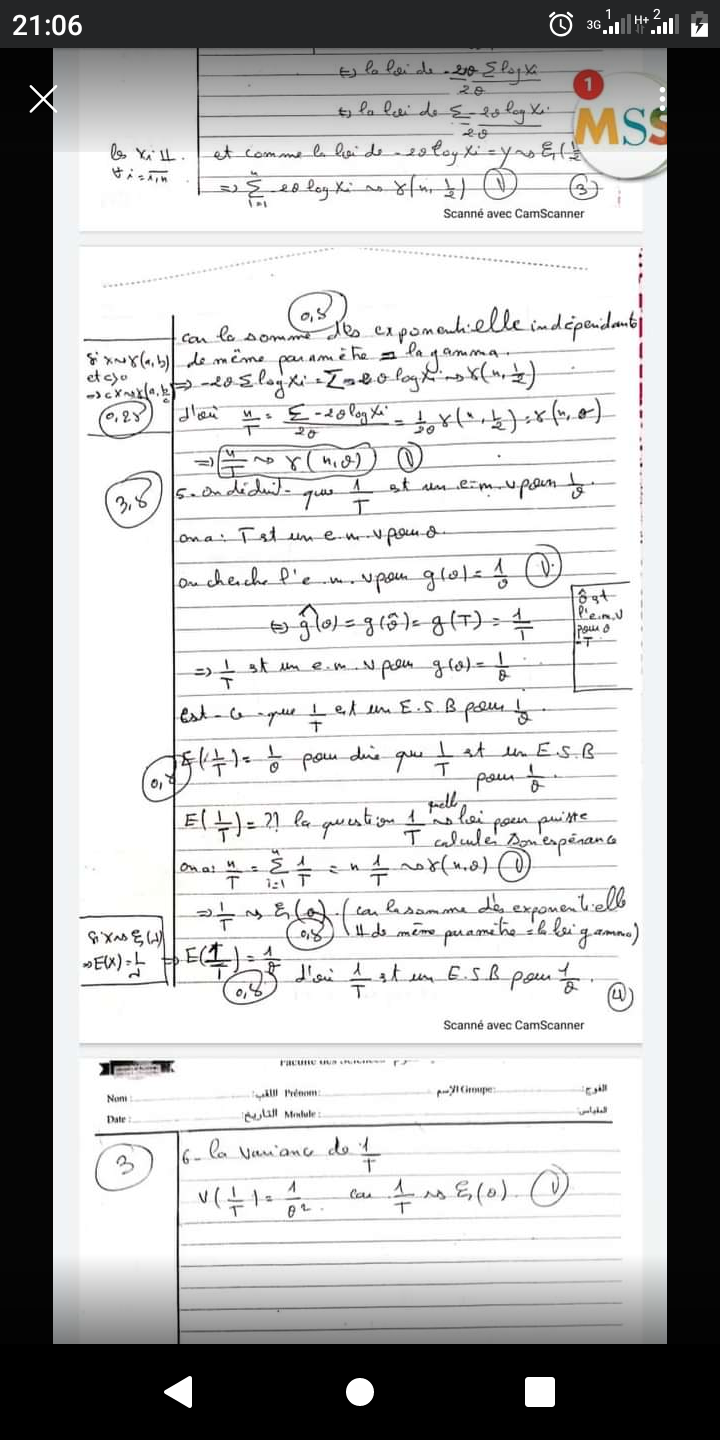 21:06
3G 1 H+ 2
⇔ la loi de -2θ Σ log Xi / 2θ
1
⇔ la loi de Σ -2θ log Xi / 2θ
MSS
les Xi ⊥⊥ et comme la loi de -2θ log Xi = Y ~> ξ(1/2
∀ i = 1,n ⇒ Σ_{i=1}^{n} -2θ log Xi ~> γ(n, 1/2) ① ③
Scanné avec CamScanner
0,5
car la somme des exponentielle indépendants
si X~>γ(a,b) de même paramètre = la gamma.
et c>0 ⇒ -2θ Σ log Xi = Σ -2θ log Xi ~> γ(n, 1/2)
⇒ cX~>γ(a, b/c)
0,25 d'où n/T = Σ -2θ log Xi / 2θ = 1/2θ γ(n, 1/2) = γ(n, θ)
⇒ n/T ~> γ(n, θ) ①
3,5 5- on déduit que 1/T est un e.m.v pour 1/θ.
on a : T est un e.m.v pour θ.
on cherche l'e.m.v pour g(θ) = 1/θ ①
θ̂ est
l'e.m.v
pour θ
= T
⇔ ĝ(θ) = g(θ̂) = g(T) = 1/T
⇒ 1/T est un e.m.v pour g(θ) = 1/θ
Est-ce que 1/T est un E.S.B pour 1/θ.
E(1/T) = 1/θ pour dire que 1/T est un E.S.B
pour 1/θ.
E(1/T) = ?? la question 1/T ~> quelle loi pour puisse
calculer son espérance
on a : n/T = Σ_{i=1}^{n} 1/T = n 1/T ~> γ(n, θ) ①
⇒ 1/T ~> ξ(θ). (car la somme des exponentielle
0,5 ⊥⊥ de même paramètre = la loi gamma)
si X~>ξ(λ)
⇒ E(X) = 1/λ ⇒ E(1/T) = 1/θ
0,5 d'où 1/T est un E.S.B pour 1/θ. ④
Scanné avec CamScanner
Nom : اللقب: Prénom: الإسم Groupe: الفوج:
Date : التاريخ: Module : المقياس:
3 6- la variance de 1/T
V(1/T) = 1/θ². car 1/T ~> ξ(θ). ①